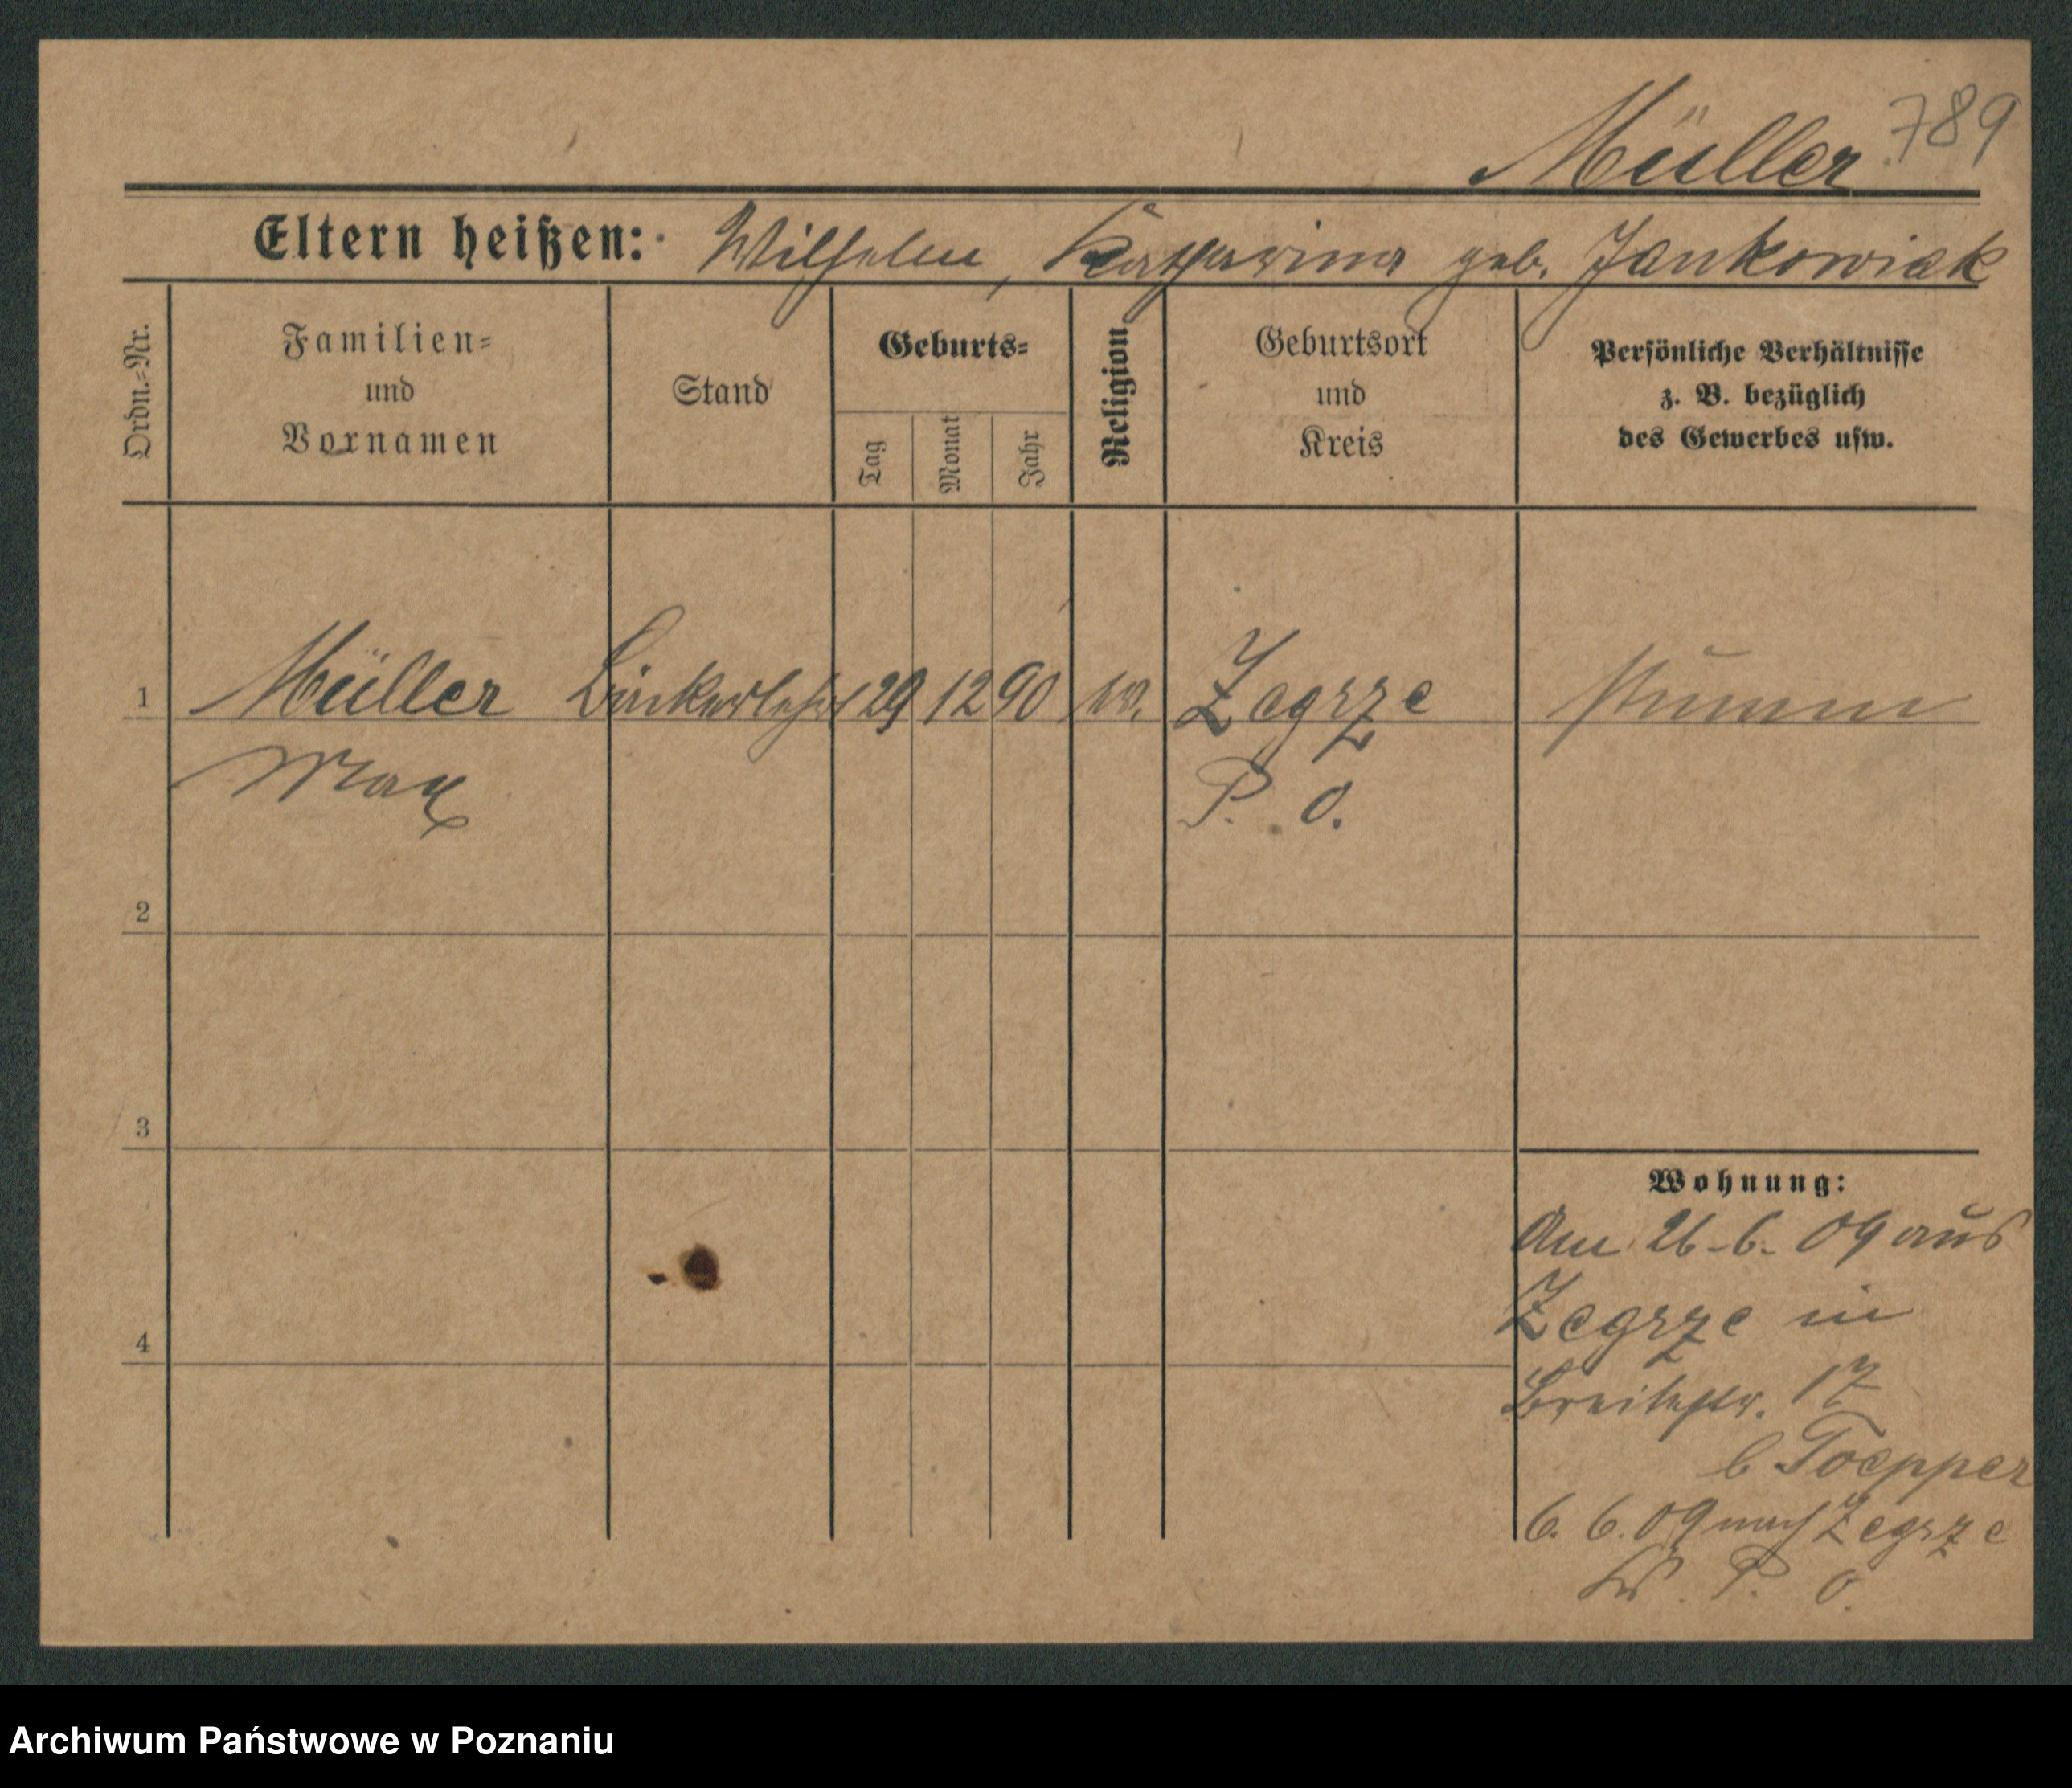 789
Müller
Eltern heißen: Wilhelm, Katharina geb. Jankowiak
Ordn.=Nr.
Familien=
und
Vornamen
Stand
Geburts=
Tag
Monat
Jahr
Religion
Geburtsort
und
Kreis
Persönliche Verhältnisse
z. B. bezüglich
des Gewerbes usw.
1 Müller 29 12 90 Zegrze stumm
Max P. O.
2
3
4
Wohnung:
Am 26-6-09 aus
Zegrze in
Breitestr. 17
b Toepper
6. 6. 09 nach Zegrze
P. O.
Archiwum Państwowe w Poznaniu